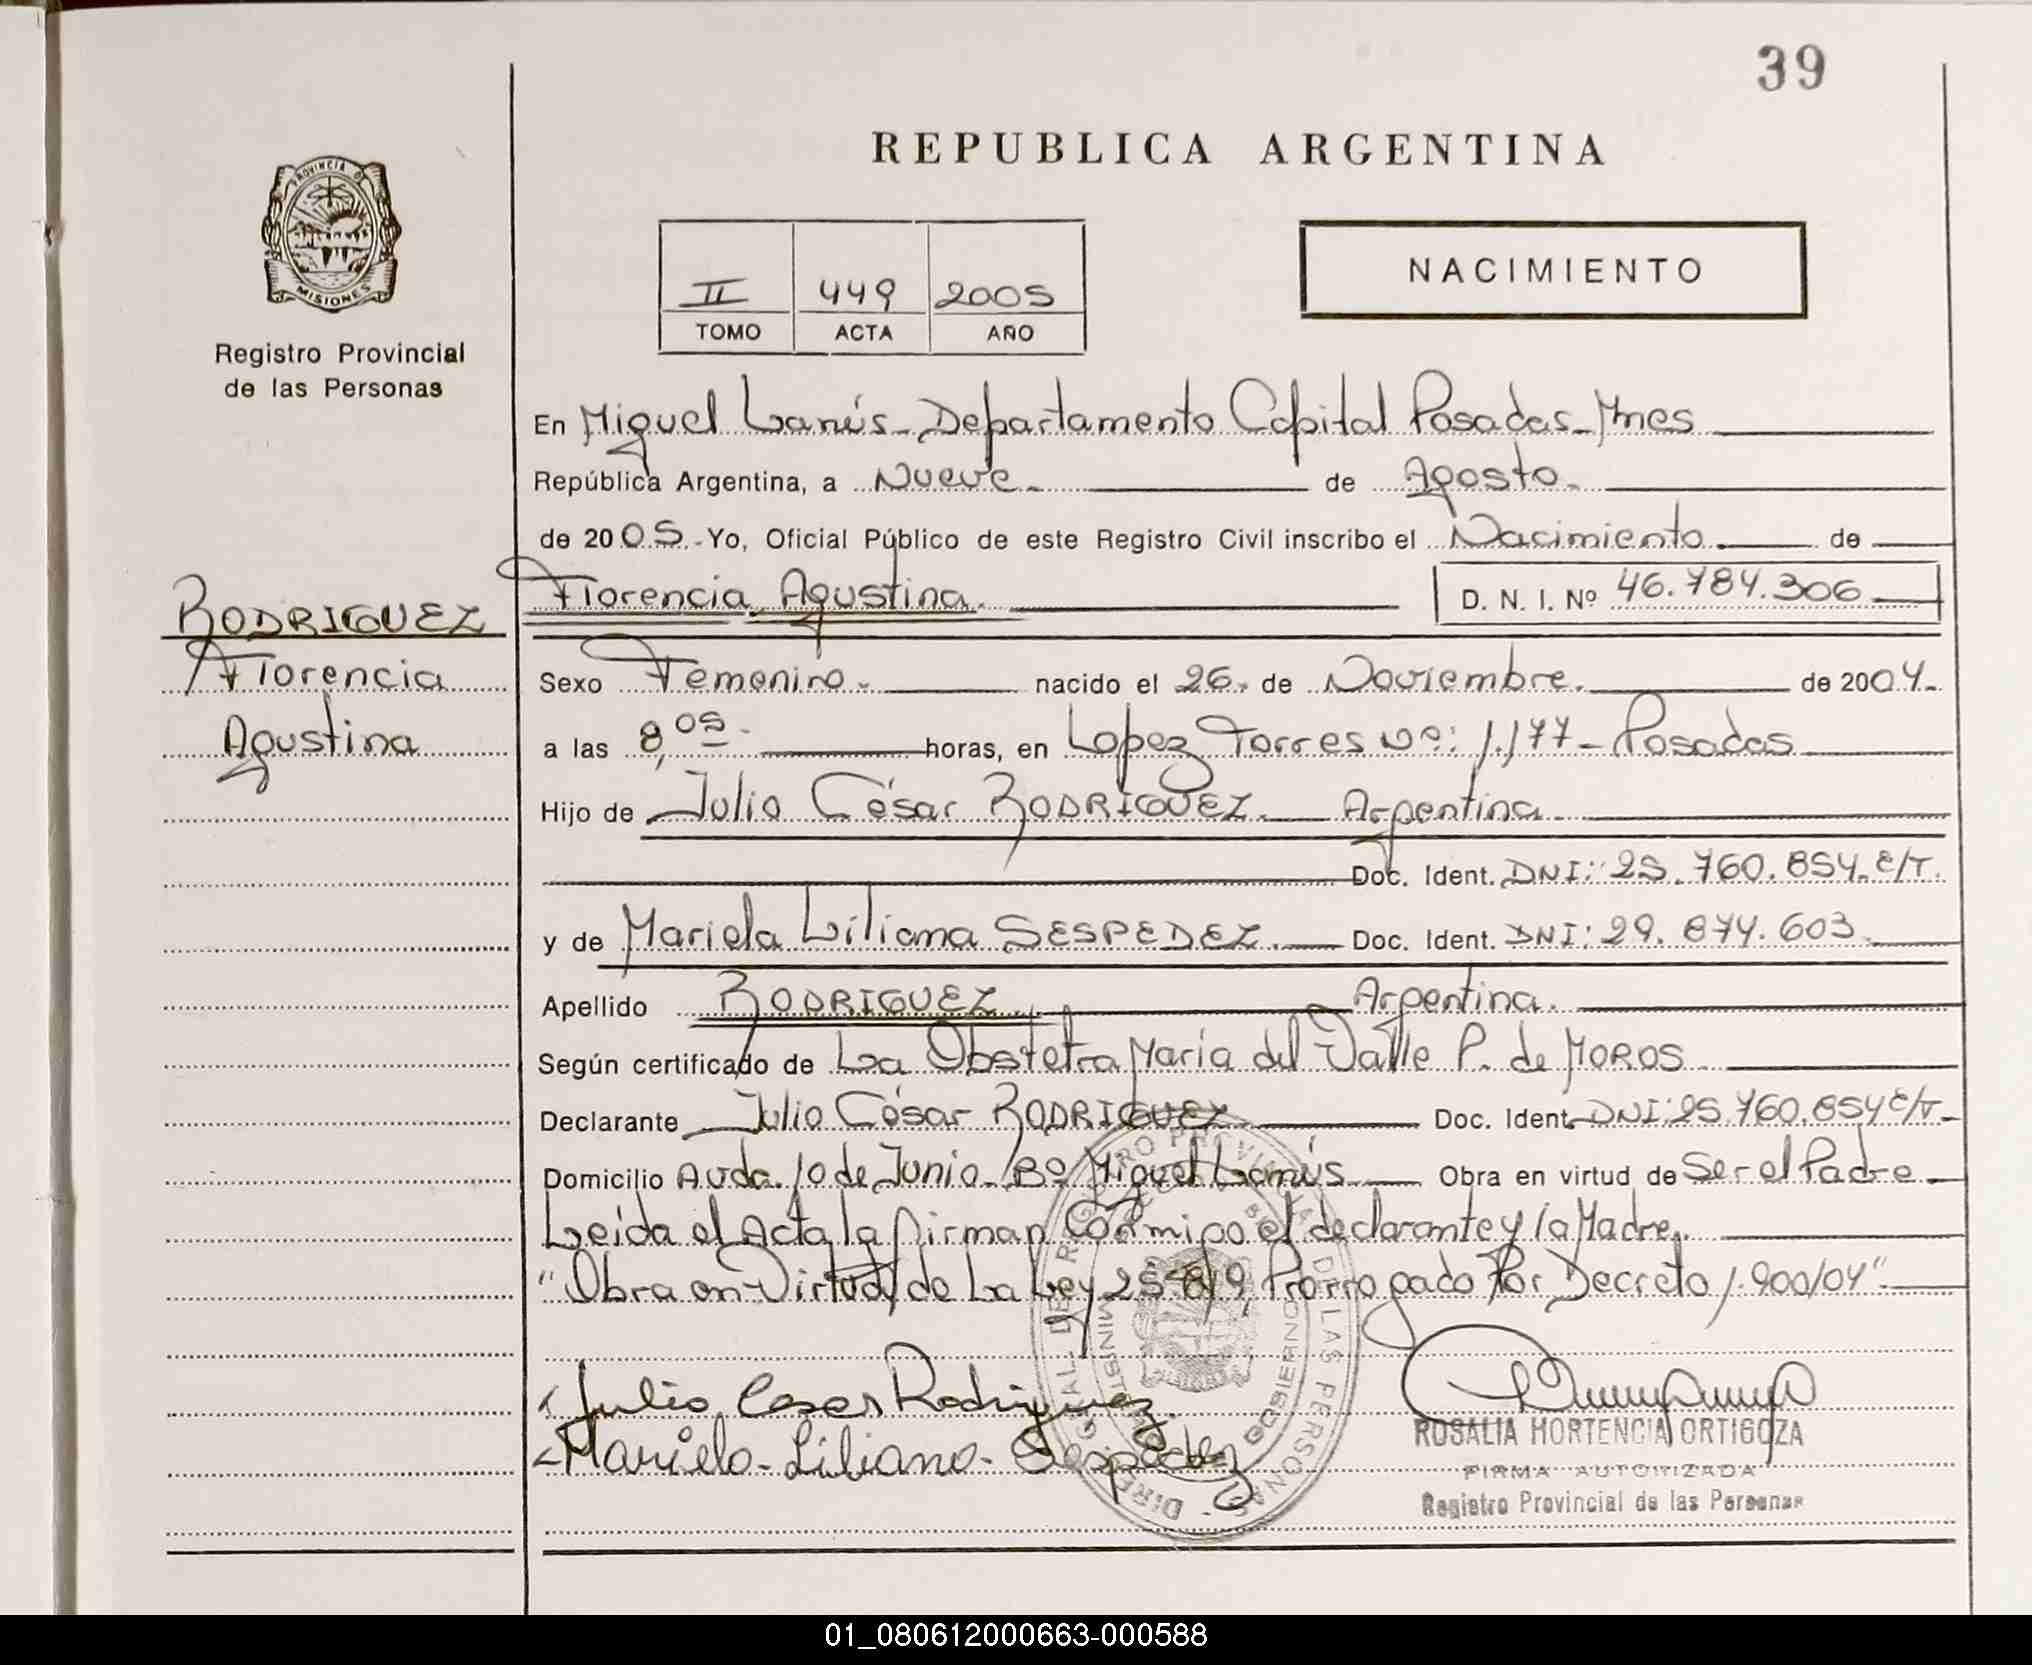 39
REPUBLICA ARGENTINA
PROVINCIA DE
MISIONES
Registro Provincial
de las Personas
II 449 2005
TOMO ACTA AÑO
NACIMIENTO
En Miguel Lanús - Departamento Capital Posadas - Mnes
República Argentina, a Nueve. de Agosto.
de 2005.- Yo, Oficial Público de este Registro Civil inscribo el Nacimiento. de
Florencia Agustina. D. N. I. Nº 46.784.306
RODRIGUEZ
Florencia
Agustina
Sexo Femenino. nacido el 26. de Noviembre. de 2004.-
a las 8,05.- horas, en Lopez Torres Nº: 1.177 - Posadas
Hijo de Julio César RODRIGUEZ. Argentina
Doc. Ident. DNI: 25.760.854. E/T.
y de Mariela Liliana SESPEDEZ. Doc. Ident. DNI: 29.874.603.
Apellido RODRIGUEZ. Argentina.
Según certificado de La Obstetra María del Valle P. de MOROS
Declarante Julio César RODRIGUEZ Doc. Ident. DNI: 25.760.854 E/T.-
Domicilio Avda. 10 de Junio - Bº Miguel Lanús Obra en virtud de Ser el Padre
Leida el Acta la firman Conmigo el declarante y la Madre.
"Obra en Virtud de La Ley 25.819, Prorrogado Por Decreto 1.900/04"
Julio Cesar Rodriguez
Mariela - Liliana - Sespedez
ROSALIA HORTENCIA ORTIGOZA
FIRMA AUTORIZADA
Registro Provincial de las Personas
01_080612000663-000588